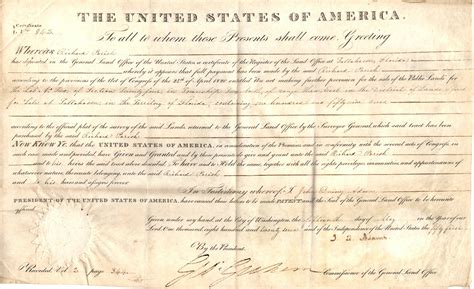 THE UNITED STATES OF AMERICA.
Certificate
To all to whom these Presents shall come, Greeting
Whereas Richard Parish
has deposited in the General Land Office of the United States a certificate of the Register of the Land Office at Tallahassee Florida
whereby it appears that full payment has been made by the said Richard Parish
according to the provisions of the Act of Congress of the 24th of April 1820 entitled An act making further provision for the sale of the Public Lands for
The Lot of Section Twenty four in Township in the District of Lands
for Sale at Tallahassee in the Territory of Florida containing one hundred and fifty nine acres
according to the official plat of the survey of the said Lands returned to the General Land Office by the Surveyor General which said tract has been
purchased by the said Richard Parish
Now Know Ye that the UNITED STATES OF AMERICA, in consideration of the Premises and in conformity with the several acts of Congress in
such case made and provided have Given and Granted and by these presents do give and grant unto the said Richard Parish
and to his heirs the said above described To Have and to Hold the same, together with all the rights privileges immunities and appurtenances of
whatsoever nature thereunto belonging, unto the said Richard Parish
and to his heirs and assigns forever
In Testimony whereof I John Quincy Adams
PRESIDENT OF THE UNITED STATES OF AMERICA, have caused these letters to be made PATENT and the Seal of the General Land Office to be hereunto affixed.
Given under my hand at the City of Washington the day of May in the Year of our
Lord One thousand eight hundred and and of the Independence of the United States the fifty
J. Q. Adams
By the President.
Recorded Vol 2 page 344
Geo: Graham Commissioner of the General Land Office